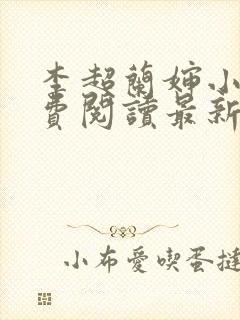 李超蘭嬸小
費閱讀最新
小布愛喫蛋撻